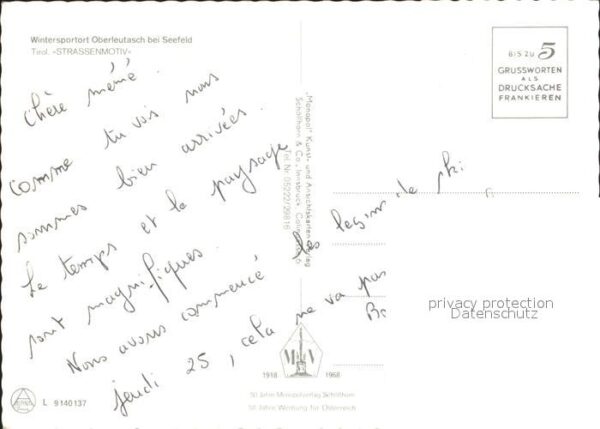 Wintersportort Oberleutasch bei Seefeld
Tirol. »STRASSENMOTIV«
Chère mémé.
comme tu vois nous
sommes bien arrivées.
Le temps et le paysage
sont magnifiques.
Nous avons commencé les leçons de ski
jeudi 25, cela ne va pas
BIS ZU 5
GRUSSWORTEN
ALS
DRUCKSACHE
FRANKIEREN
"Monopol" Kunst- und Ansichtskarten
Schöllhorn & Co., Innsbruck,
Tel. Nr. 05222/29816
privacy protection
Datenschutz
1918 1968
50 Jahre Monopolverlag Schöllhorn
50 Jahre Werbung für Österreich
L 9140137